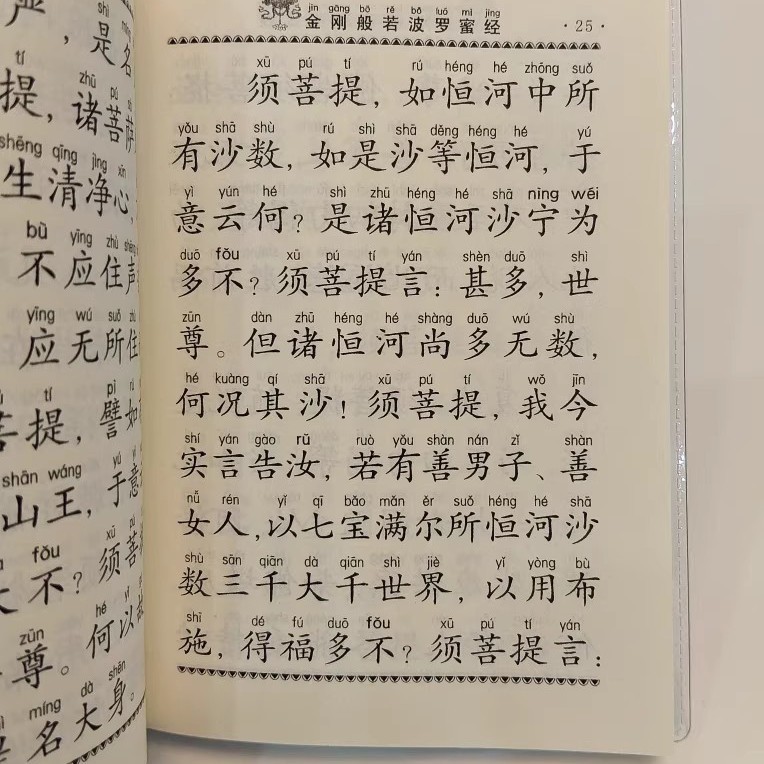 严，是名
tí zhū
提，诸菩萨
shēng qīng jìng xīn
生清净心，
bù yīng zhù shēng
不应住声
yīng wú suǒ zhù
应无所住
tí pì rú
菩提，譬如
shān wáng yú yì
山王，于意
fǒu xū pú
不？须菩
zūn hé yǐ
尊。何以故
míng dà shēn
是名大身。
jīn gāng bō rě bō luó mì jīng
金刚般若波罗蜜经 ·25·
xū pú tí rú héng hé zhōng suǒ
须菩提，如恒河中所
yǒu shā shù rú shì shā děng héng hé yú
有沙数，如是沙等恒河，于
yì yún hé shì zhū héng hé shā nìng wēi
意云何？是诸恒河沙宁为
duō fǒu xū pú tí yán shèn duō shì
多不？须菩提言：甚多，世
zūn dàn zhū héng hé shàng duō wú shù
尊。但诸恒河尚多无数，
hé kuàng qí shā xū pú tí wǒ jīn
何况其沙！须菩提，我今
shí yán gào rǔ ruò yǒu shàn nán zǐ shàn
实言告汝，若有善男子、善
nǚ rén yǐ qī bǎo mǎn ěr suǒ héng hé shā
女人，以七宝满尔所恒河沙
shù sān qiān dà qiān shì jiè yǐ yòng bù
数三千大千世界，以用布
shī dé fú duō fǒu xū pú tí yán
施，得福多不？须菩提言：